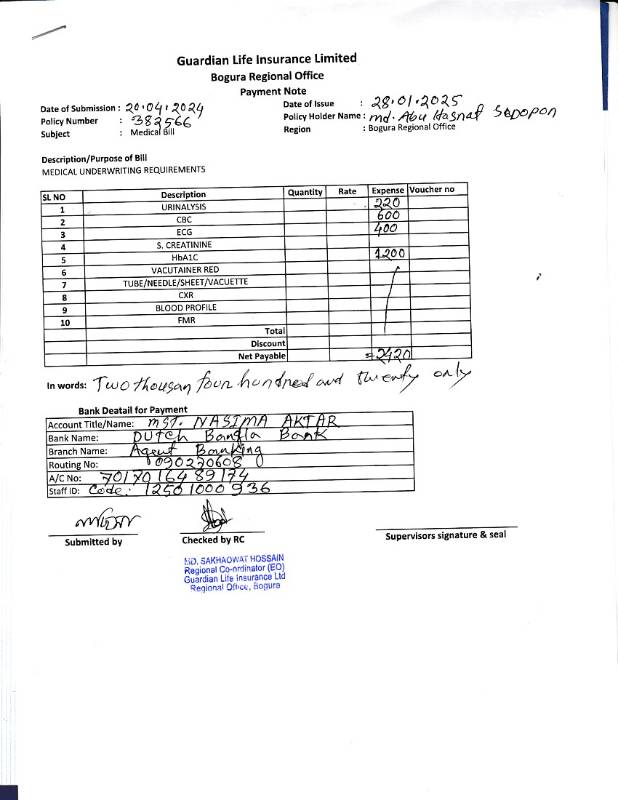 Guardian Life Insurance Limited
Bogura Regional Office
Payment Note
Date of Submission : 20.04.2024 Date of Issue : 28.01.2025
Policy Number : 382566 Policy Holder Name : md. Abu Hasnat
Subject : Medical Bill Region : Bogura Regional Office
Description/Purpose of Bill
MEDICAL UNDERWRITING REQUIREMENTS
SL NO Description Quantity Rate Expense Voucher no
1 URINALYSIS 220
2 CBC 600
3 ECG 400
4 S. CREATININE
5 HbA1C 1200
6 VACUTAINER RED
7 TUBE/NEEDLE/SHEET/VACUETTE
8 CXR
9 BLOOD PROFILE
10 FMR
Total
Discount
Net Payable = 2420
In words: Two thousan four hundred and twenty only
Bank Deatail for Payment
Account Title/Name: MST. NASIMA AKTAR
Bank Name: DUTCH Bangla Bank
Branch Name: Agent Banking
Routing No: 090270608
A/C No: 7017016489174
Staff ID: Code: 12501000936
Submitted by Checked by RC Supervisors signature & seal
MD. SAKHAOWAT HOSSAIN
Regional Co-ordinator (EO)
Guardian Life Insurance Ltd
Regional Office, Bogura